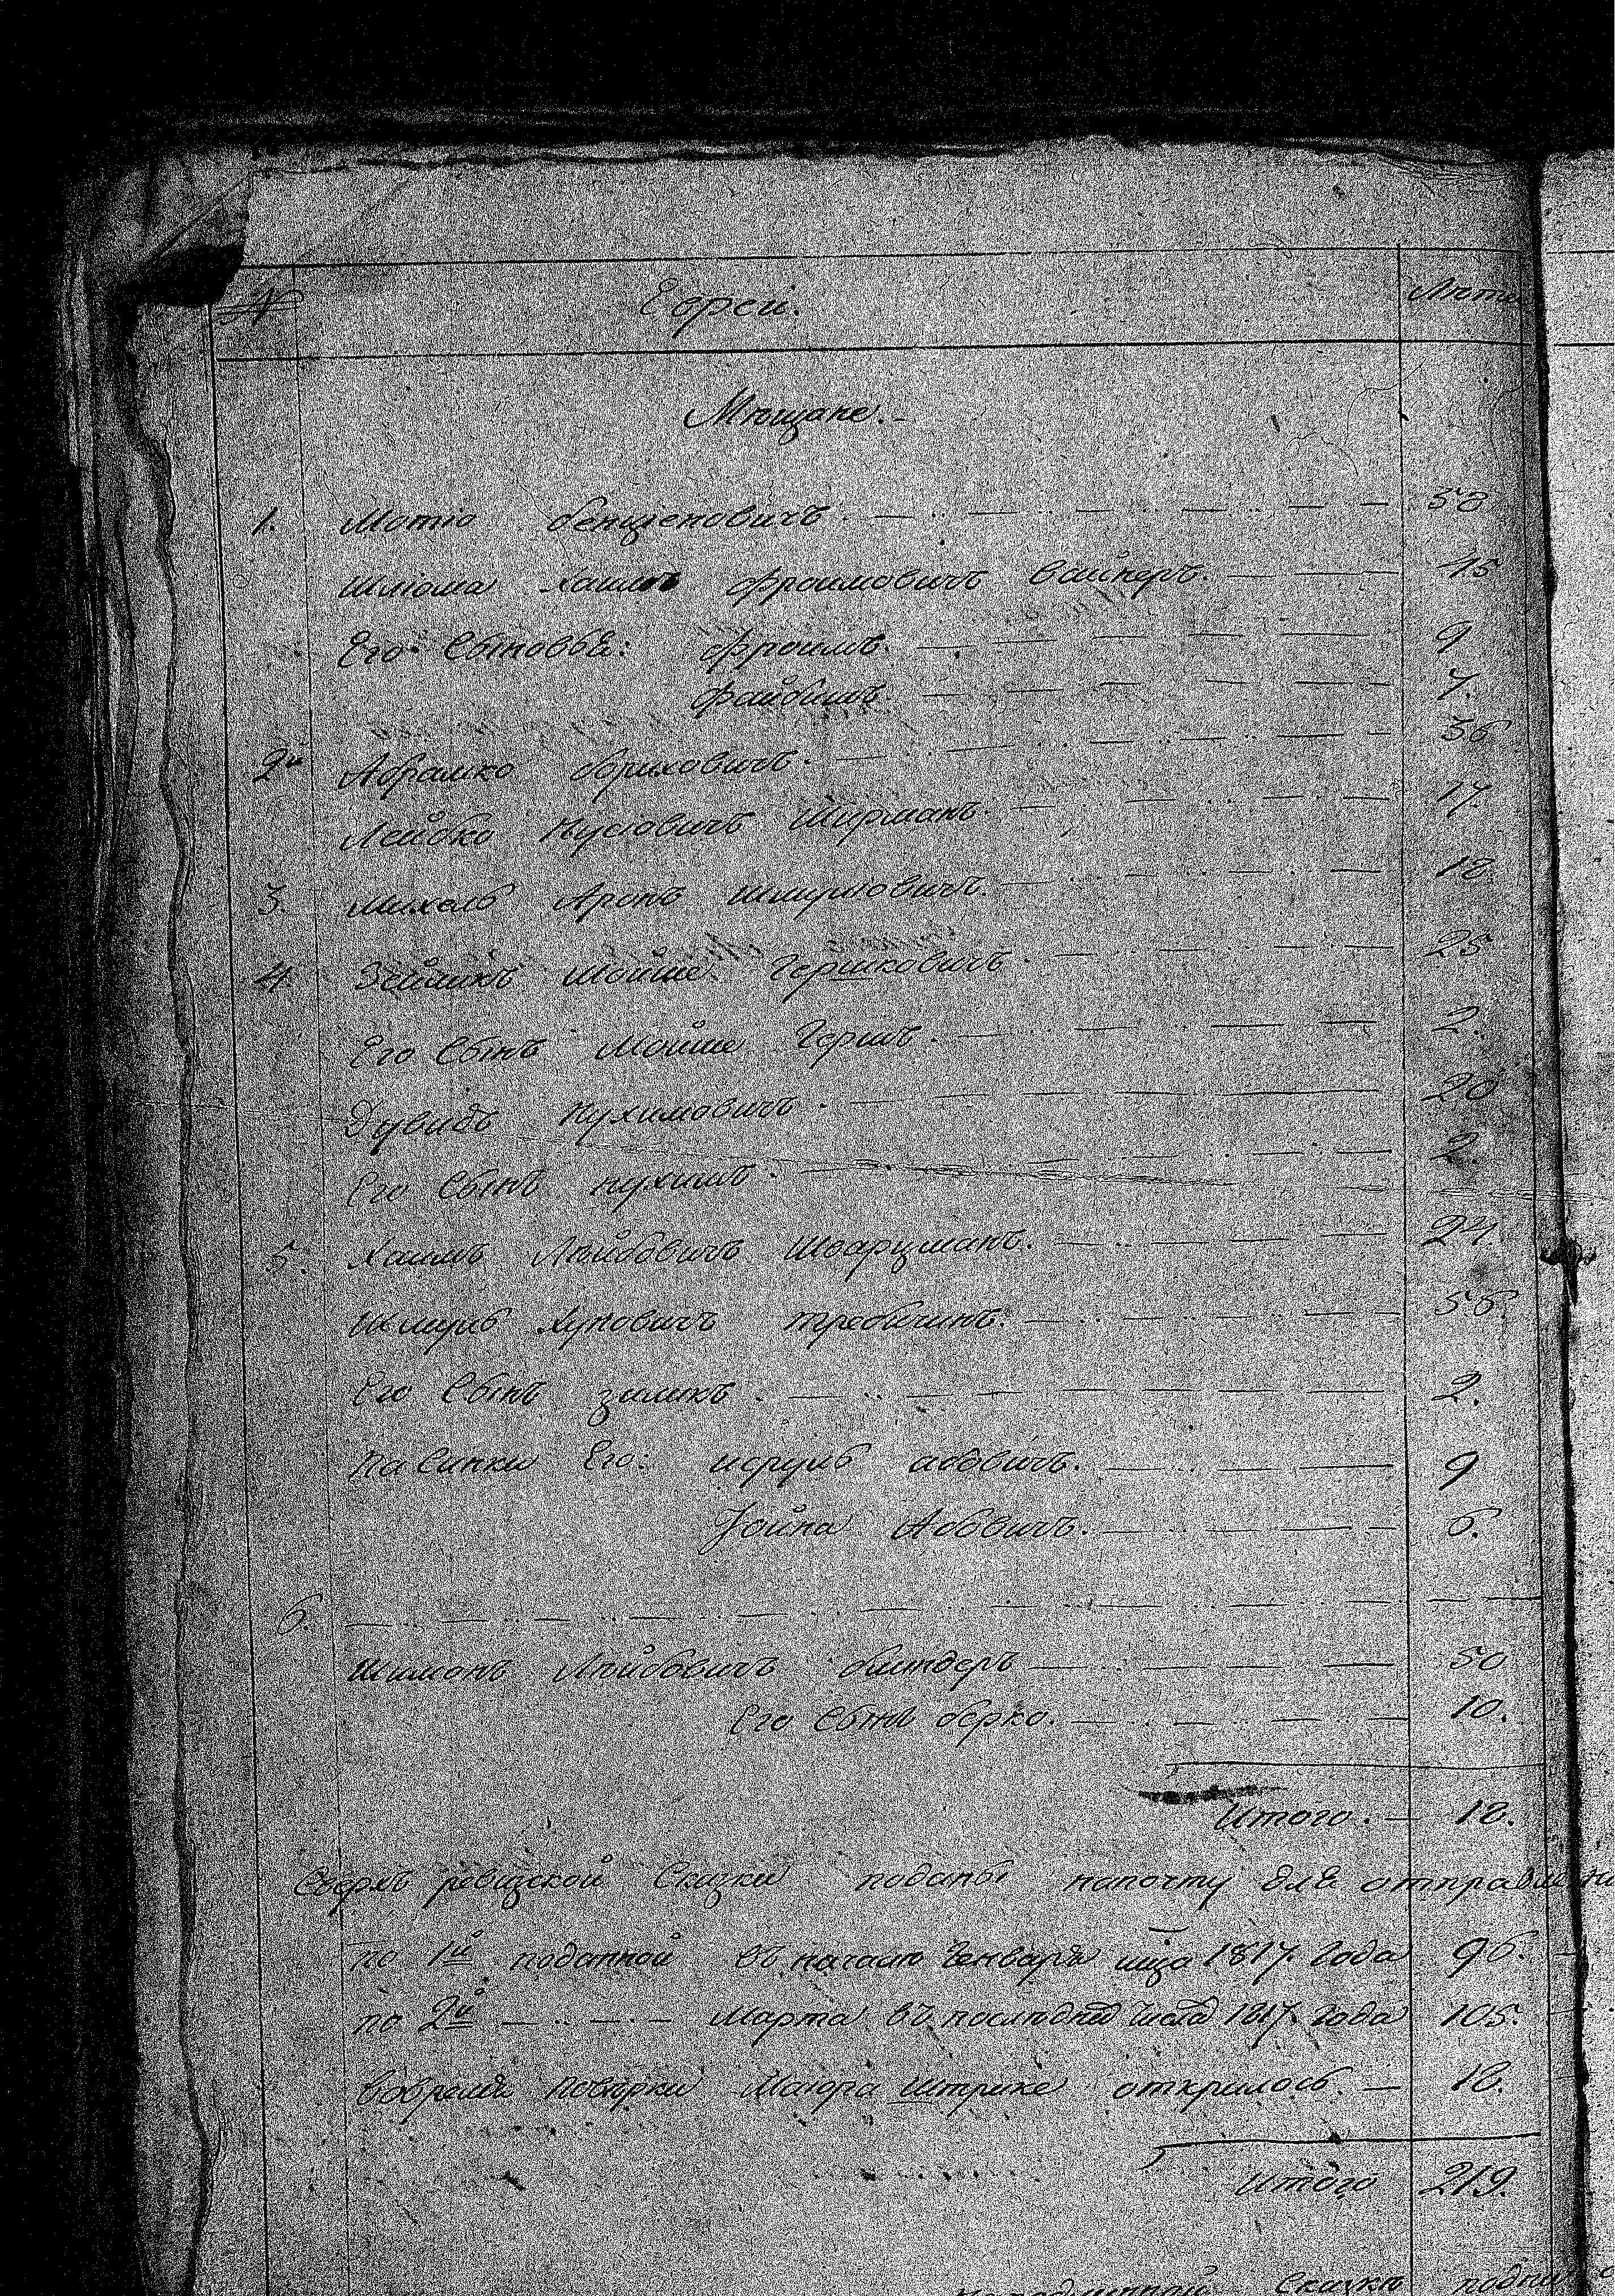 № Евреи. Лѣта
Мѣщане.
1. Мотіо бенценовичъ. 58
Шліома Хаимъ Фроимовичъ Вайнеръ. 45
Его Сыновья: Фроимъ. 9
Файбишъ. 7.
2й Абрамко бориховичъ. 36
Лейбко Нусіовичъ Ширманъ. 17.
3. Михель Аронъ Шмуліовичъ. 18.
4. Зейликъ Мойше Гершковичъ. 25
Его Сынъ Мойше Гершъ. 2.
Дувидъ Нухимовичъ. 20
Его Сынъ нухимъ. 2.
5. Хаимъ Лѣйбовичъ Шварцманъ. 24
Шмуль Хуновичъ требичинъ. 56
Его Сынъ зиликъ. 2.
Пасинки Его: исруль аббвичъ. 9
Іойна Аббвичъ. 6.
6.
Шимонъ Лѣйбовичъ биндеръ 50
Его Сынъ берко. 10.
Итого. 18.
Сверхъ ревизской Сказки поданы напочту для отправле
по 1й поданной въ началѣ Генваря мца 1817. Года 96.
по 2й Марта въ послѣдния Числа 1817. Года 105.
вовремя поверки Маіора Штрике открилось. 18.
Итого 219.
Сказки